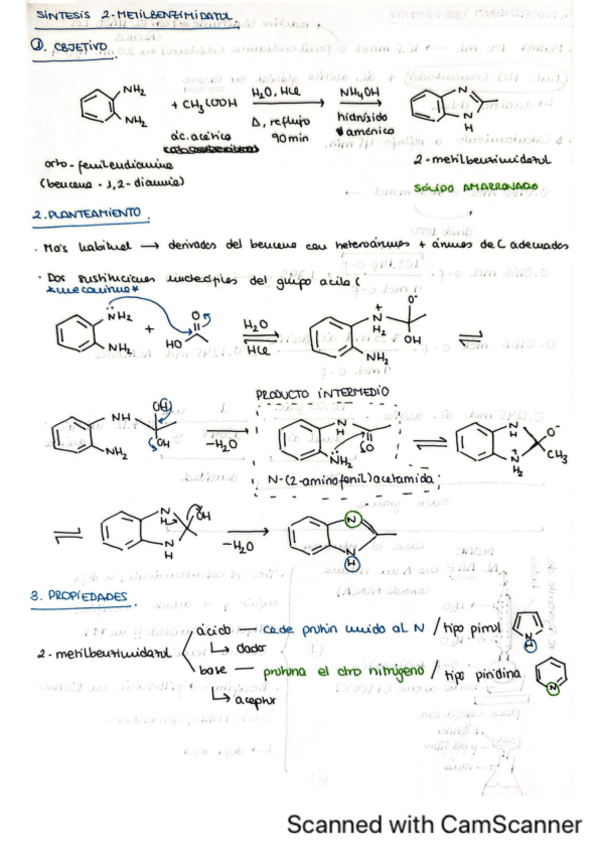 SÍNTESIS 2-METILBENZIMIDAZOL
1. OBJETIVO
NH2
NH2
+ CH3COOH
ác. acético
H2O, HCl
Δ, reflujo
90min
NH4OH
hidróxido
amónico
N
N
H
orto-fenilendiamina
(benceno-1,2-diamina)
2-metilbenzimidazol
SÓLIDO AMARRONADO
2. PLANTEAMIENTO
· Más habitual → derivados del benceno con heteroátomos + átomos de C adecuados
· Dos sustituciones nucleófilas del grupo acilo (
*mecanismo*
NH2
NH2
+
HO
O
H2O
HCl
+
N
H2
O-
OH
NH2
PRODUCTO INTERMEDIO
NH
OH
OH
NH2
-H2O
N
H
O
NH2
N-(2-aminofenil)acetamida;
H
N
O-
CH3
+
N
H2
N
H
OH
N
H
-H2O
N
N
H
3. PROPIEDADES
2-metilbenzimidazol
ácido — cede protón unido al N / tipo pirrol
N
H
↳ dador
base — protona el otro nitrógeno / tipo piridina
N
↳ aceptor
Scanned with CamScanner